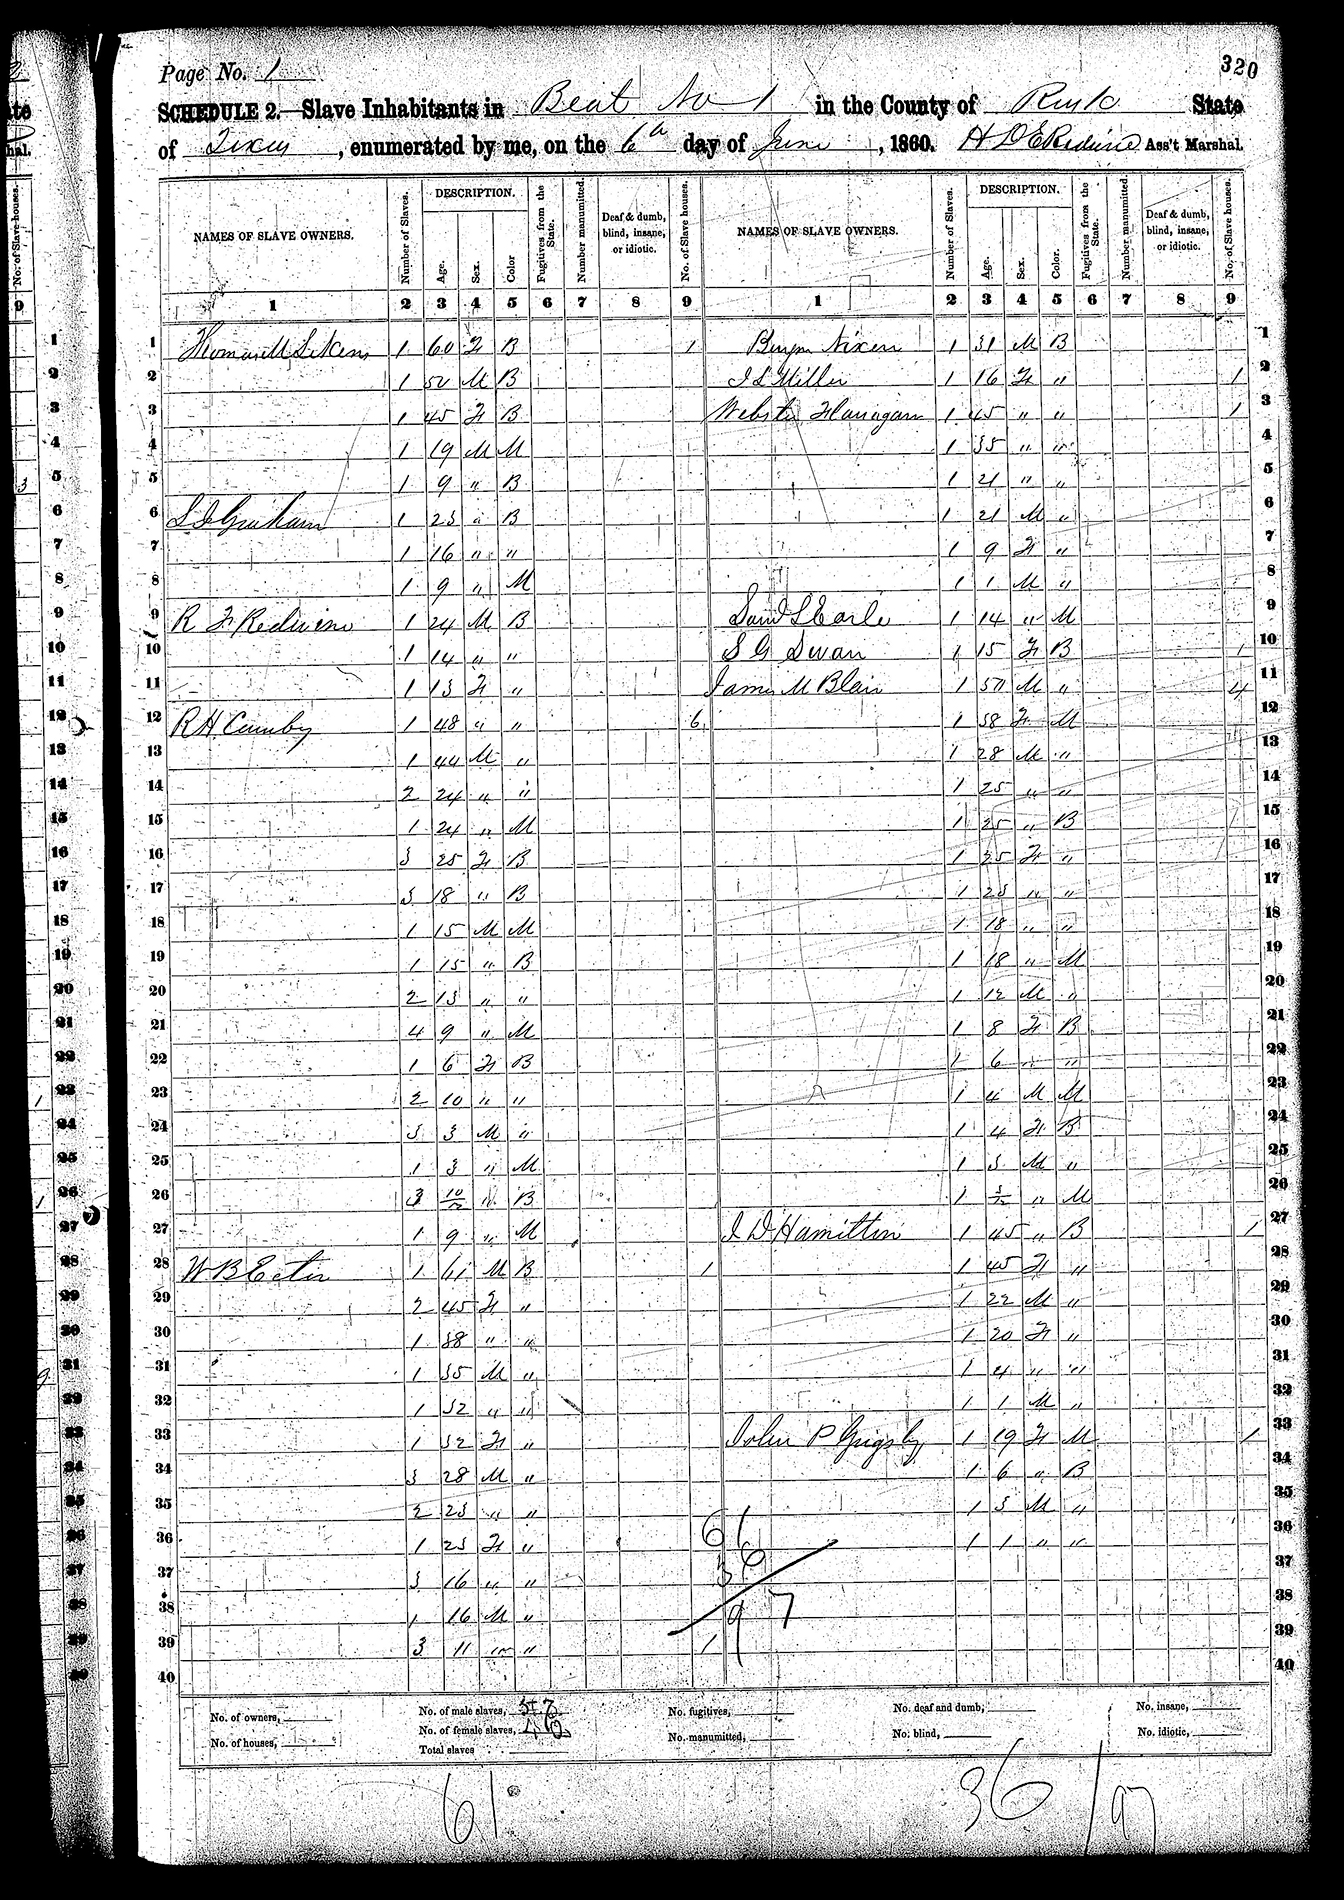 Page No. 1
320
SCHEDULE 2.—Slave Inhabitants in Beat No 1 in the County of Rusk State
of Texas, enumerated by me, on the 6th day of June, 1860. Ass't Marshal.
NAMES OF SLAVE OWNERS. Number of Slaves. DESCRIPTION. Age. Sex. Color Fugitives from the State. Number manumitted. Deaf & dumb, blind, insane, or idiotic. No. of Slave houses. NAMES OF SLAVE OWNERS. Number of Slaves. DESCRIPTION. Age. Sex. Color. Fugitives from the State. Number manumitted. Deaf & dumb, blind, insane, or idiotic. No. of Slave houses.
1 2 3 4 5 6 7 8 9 1 2 3 4 5 6 7 8 9
1 Thomas M Likens 1 60 F B 1 Benjn Nixen 1 31 M B 1
2 1 50 M B J L Miller 1 16 F " 1 2
3 1 45 F B Webster Flanagan 1 45 " " 1 3
4 1 19 M M 1 35 " " 4
5 1 9 " B 1 21 " " 5
6 Graham 1 23 " B 1 21 M " 6
7 1 16 " " 1 9 F " 7
8 1 9 " M 1 1 M " 8
9 R F Redwine 1 24 M B Saml L Earle 1 14 " M 9
10 1 14 " " S G Swan 1 15 F B 1 10
11 1 13 F " James M Blair 1 50 M " 4 11
12 R H Cumby 1 48 " " 6 1 38 F M 12
13 1 44 M " 1 28 M " 13
14 2 24 " " 1 25 " " 14
15 1 24 " M 1 25 " B 15
16 3 25 F B 1 25 F " 16
17 3 18 " B 1 23 " " 17
18 1 15 M M 1 18 " " 18
19 1 15 " B 1 18 " M 19
20 2 13 " " 1 12 M " 20
21 4 9 " M 1 8 F B 21
22 1 6 F B 1 6 " " 22
23 2 10 " " 1 4 M M 23
24 3 3 M " 1 4 F B 24
25 1 3 " M 1 3 M " 25
26 3 10/12 " B 1 3/12 " M 26
27 1 9 " M J D Hamilton 1 45 " B 1 27
28 W B Ector 1 61 M B 1 1 45 F " 28
29 2 45 F " 1 22 M " 29
30 1 38 " " 1 20 F " 30
31 1 35 M " 1 4 " " 31
32 1 32 " " 1 1 M " 32
33 1 32 F " John P Grigsby 1 19 F M 1 33
34 3 28 M " 1 6 " B 34
35 2 23 " " 1 3 M " 35
36 1 23 F " 61 1 1 " " 36
37 3 16 " " 36 37
38 1 16 M " 97 38
39 3 11 " " 1 39
40 40
No. of owners, No. of male slaves, No. of fugitives, No. deaf and dumb, No. insane,
No. of houses, No. of female slaves, No. manumitted, No. blind, No. idiotic,
Total slaves
61 36 / 97